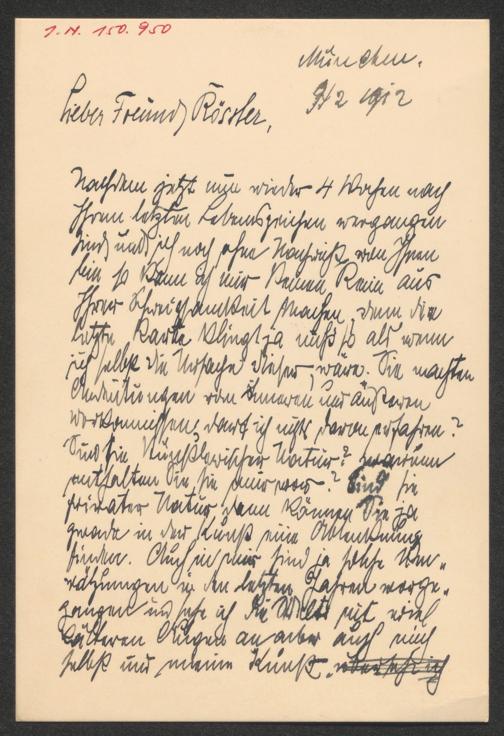 J.N. 150.950
München.
2 1912
Lieber Freund Rössler,
Nachdem jetzt nun wieder 4 Wochen nach
Ihrem letzten Lebenszeichen vergangen
sind und ich noch ohne Nachricht von Ihnen
bin so kann ich mir keinen Reim aus
Ihrer Schweigsamkeit machen, denn die
letzte Karte klingt ja nicht so als wenn
ich selbst die Ursache dieser wäre. Sie machten
Andeutungen von inneren und äußeren
Vorkommnissen; darf ich nichts davon erfahren?
Sind sie künstlerischer Natur? warum
enthalten Sie sie mir vor? Sind sie
privater Natur dann können Sie ja
gerade in der Kunst eine Ablenkung
finden. Auch in mir sind ja solche Um-
wälzungen in den letzten Jahren vorge-
gangen und sehe ich die Welt mit viel
älteren Augen an aber auch mich
selbst und meine Kunst.